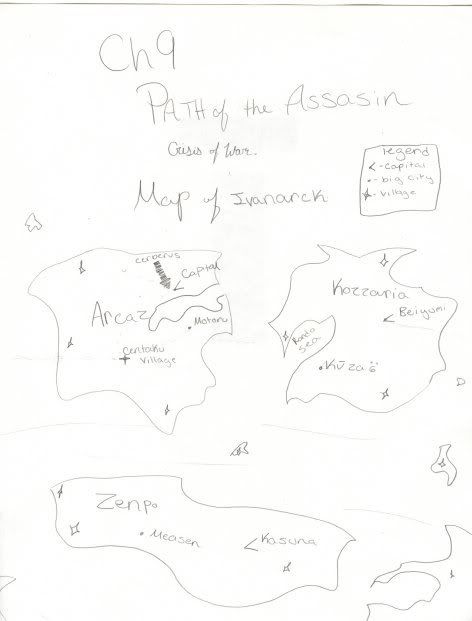 Ch 9
PATH of the Assasin
Crisis of War.
Map of Ivanarck
legend
<-capital
•-big city
-village
cerberus
Capital
Arcaz
Motoru
Centaku
Village
Kozzaria
Beiyumi
Rando
Sea
Zenpo
Measen
Kasuna